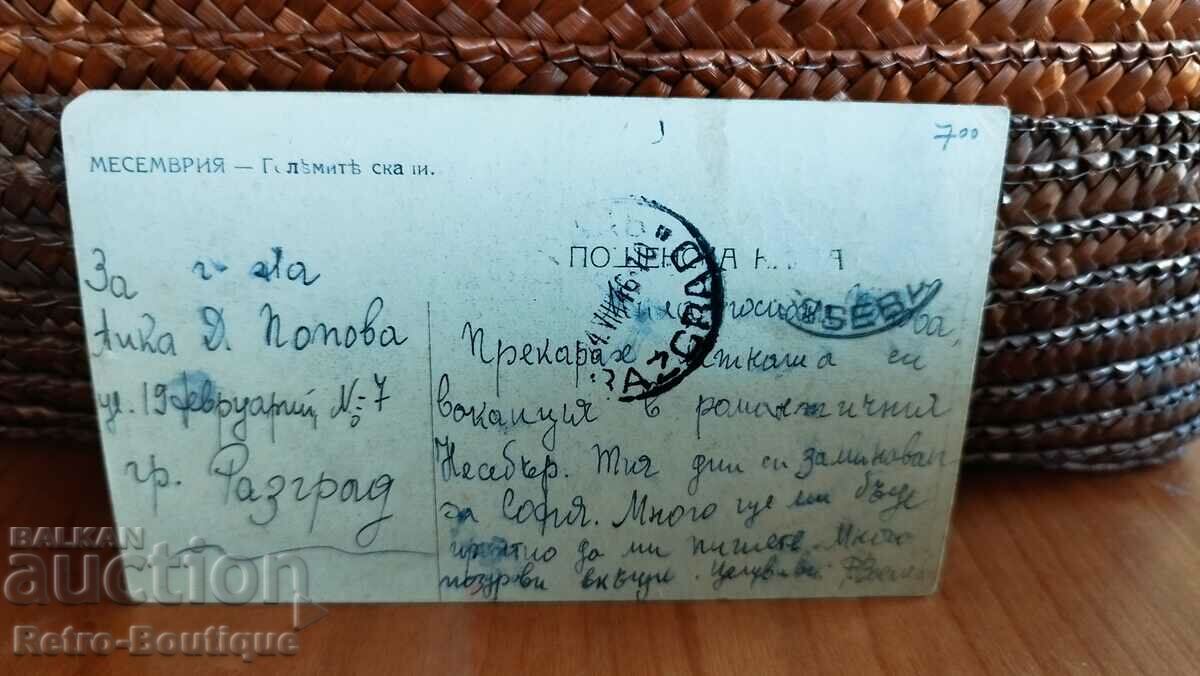 МЕСЕМВРИЯ — Голѣмитѣ скали.
7⁰⁰
ПОЩЕНСКА КАРТА
За г-жа
Анка Д. Попова
ул. 19 февруарий № 7
гр. Разград
RAZGRAD
Мила госпожо Попова,
Прекарах си
ваканция в романтичния
Несебър. Тия дни си заминавам
за София. Много ще ми бъде
приятно да ми пишете. Много
поздрави вкъщи. Целувам Ви
BALKAN
auction
Retro-Boutique